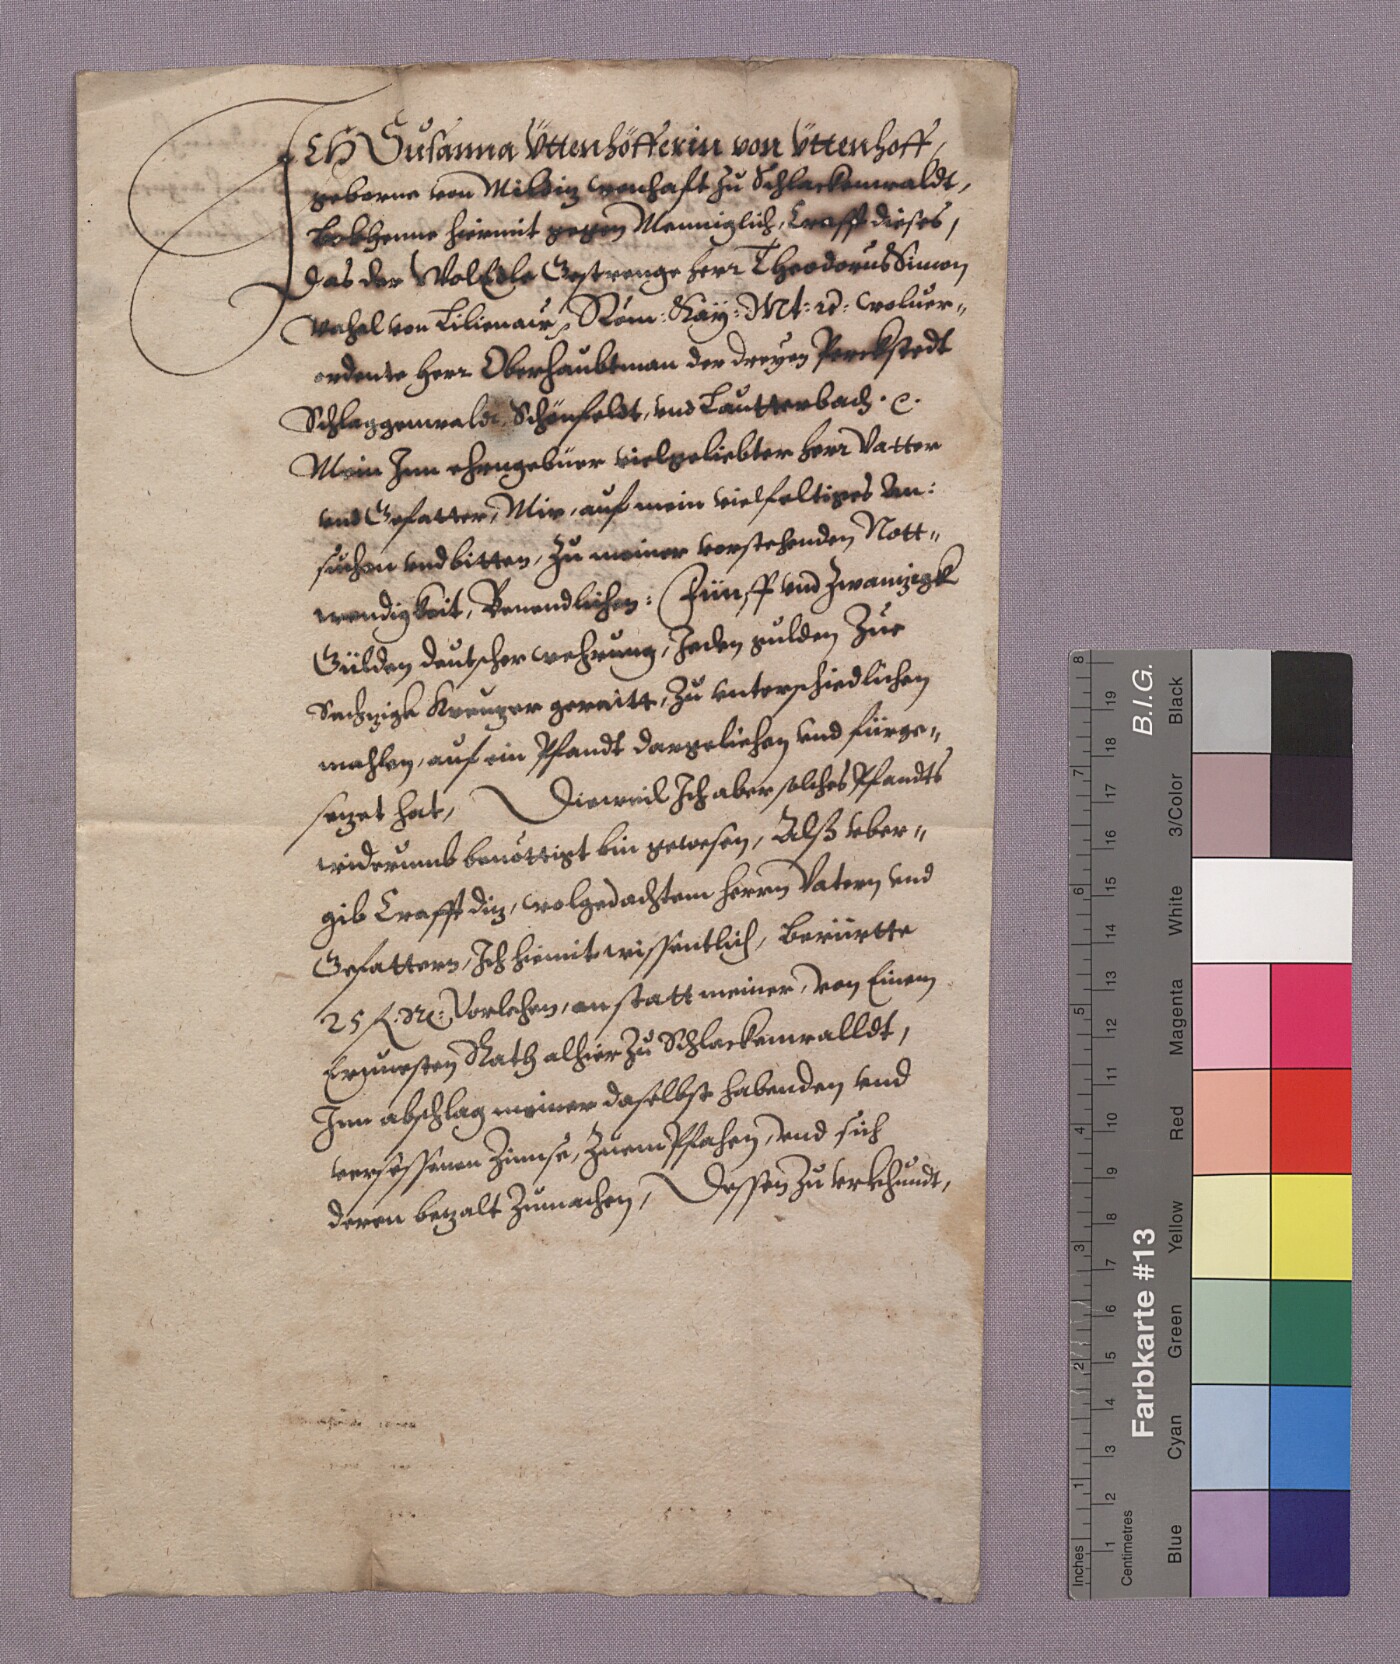 ICH Susanna Üttenhöfferin von Üttenhoff,
geborne von Miltiz wonhaft zu Schlackenwaldt,
bekhenne hiermit gegen Menniglich, Crafft dieses,
Das der WolEdle Gestrenge herr Theodorus Simon
von Lilienaw, Röm: Kay: Mt: woluer„
ordente herr Oberhaubtman der dreyen Perckstedt
Schlaggenwaldt, Schönfeldt, vnd Lautterbach
Mein Inn ehrngebüer vielgeliebter herr Vatter
vnd Gefatter, Mir, auf mein vielfeltiges An:
suchen vnd bitten, Zu meiner vorstehenden Nott„
wendigkeit, Benendlichen: Fünff vnd Zwainzigk
Gülden deutscher wehrung, Jeden gulden Zue
Sechzigk Kreuzer geraitt, Zu vnterschiedlichen
mahlen, auf ein Pfandt dargeliehen vnd fürge„
sezet hat, Dieweil Ich aber solches Pfandts
widerumb benöttigt bin gewesen, Alß vber„
gib Crafft diz, wolgedachtem herrn Vatern vnd
Gefattern, Ich hiemit wissentlich, berürtte
25 f. Vorlehen, anstatt meiner, von Einem
Ernuesten Rath alhier Zu Schlackenwalldt,
Inn abschlag meiner daselbst habenden vnd
versessenen Zinnse, Zuempfahen, vnd sich
deren bezalt Zumachen, Dessen Zu vrkhundt,
Inches
Centimetres
1 2 3 4 5 6 7 8
1 2 3 4 5 6 7 8 9 10 11 12 13 14 15 16 17 18 19
Farbkarte #13
B.I.G.
Blue
Cyan
Green
Yellow
Red
Magenta
White
3/Color
Black